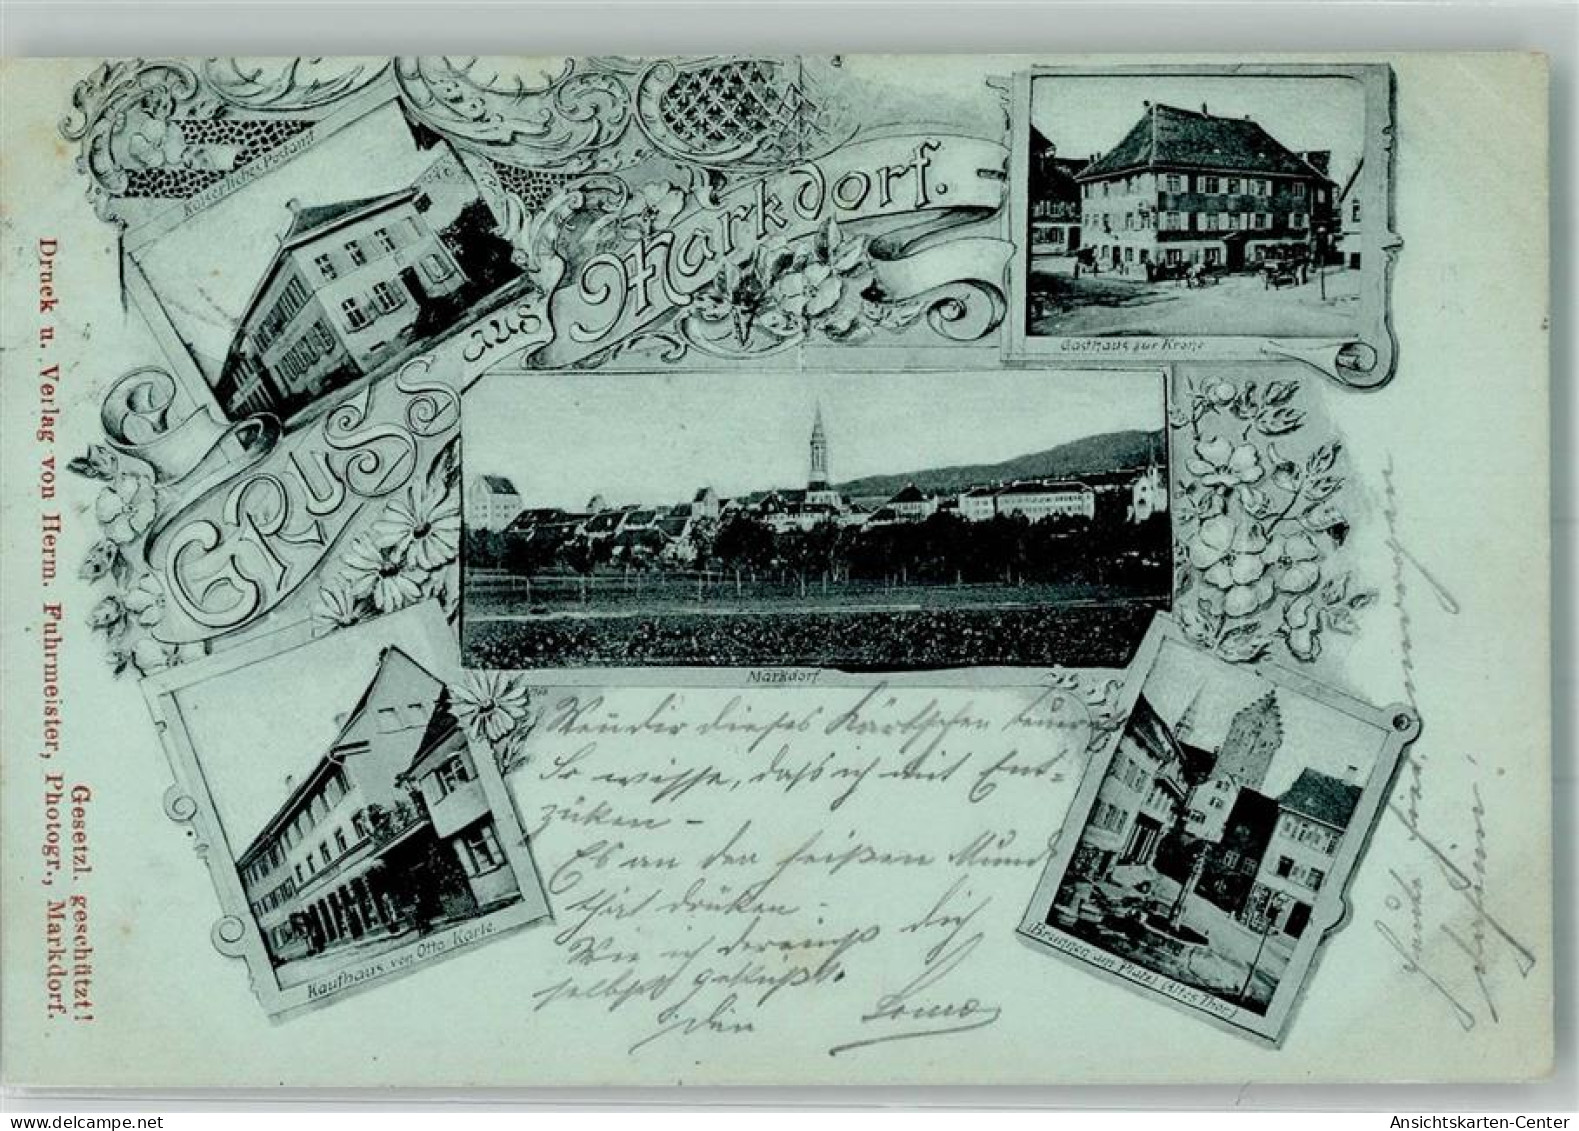 Kaiserliches Postamt
Gruss aus Markdorf.
Gasthaus zur Krone
Markdorf.
Kaufhaus von Otto Karle.
Brunnen am Platz (Altes Thor)
Druck u. Verlag von Herm. Fuhrmeister, Photogr., Markdorf.
Gesetzl. geschützt!
dieses Kärtchen
So wisse, dass ich mit Ent-
züken -
Es an den heißen Mund
drüken -
Wie ich dereinst dich
selbst geküßt.
Dein
Ansichtskarten-Center
www.delcampe.net